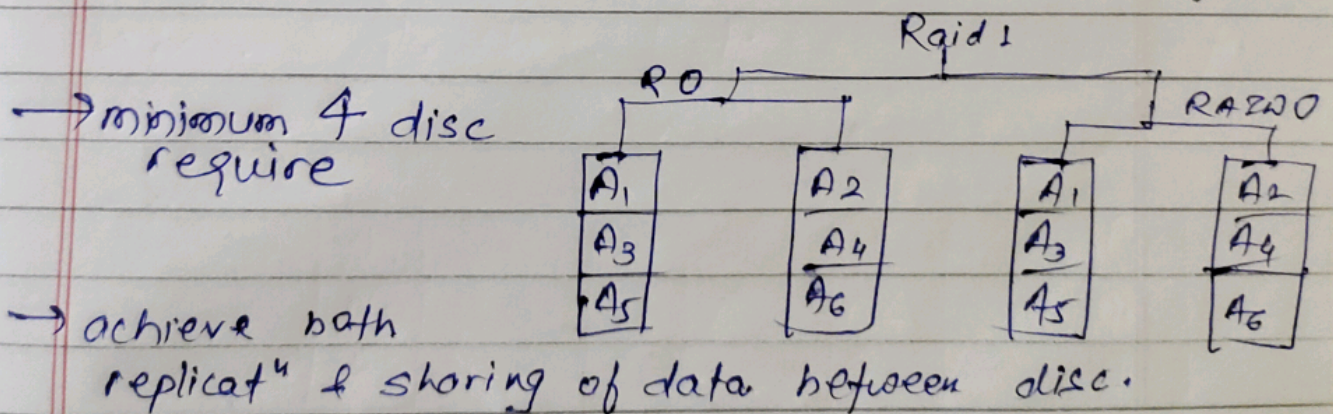 Raid 1
R0
RAID 0
→ minimum 4 disc
require
A1 A2 A1 A2
A3 A4 A3 A4
A5 A6 A5 A6
→ achieve both
replicatⁿ & sharing of data between disc.